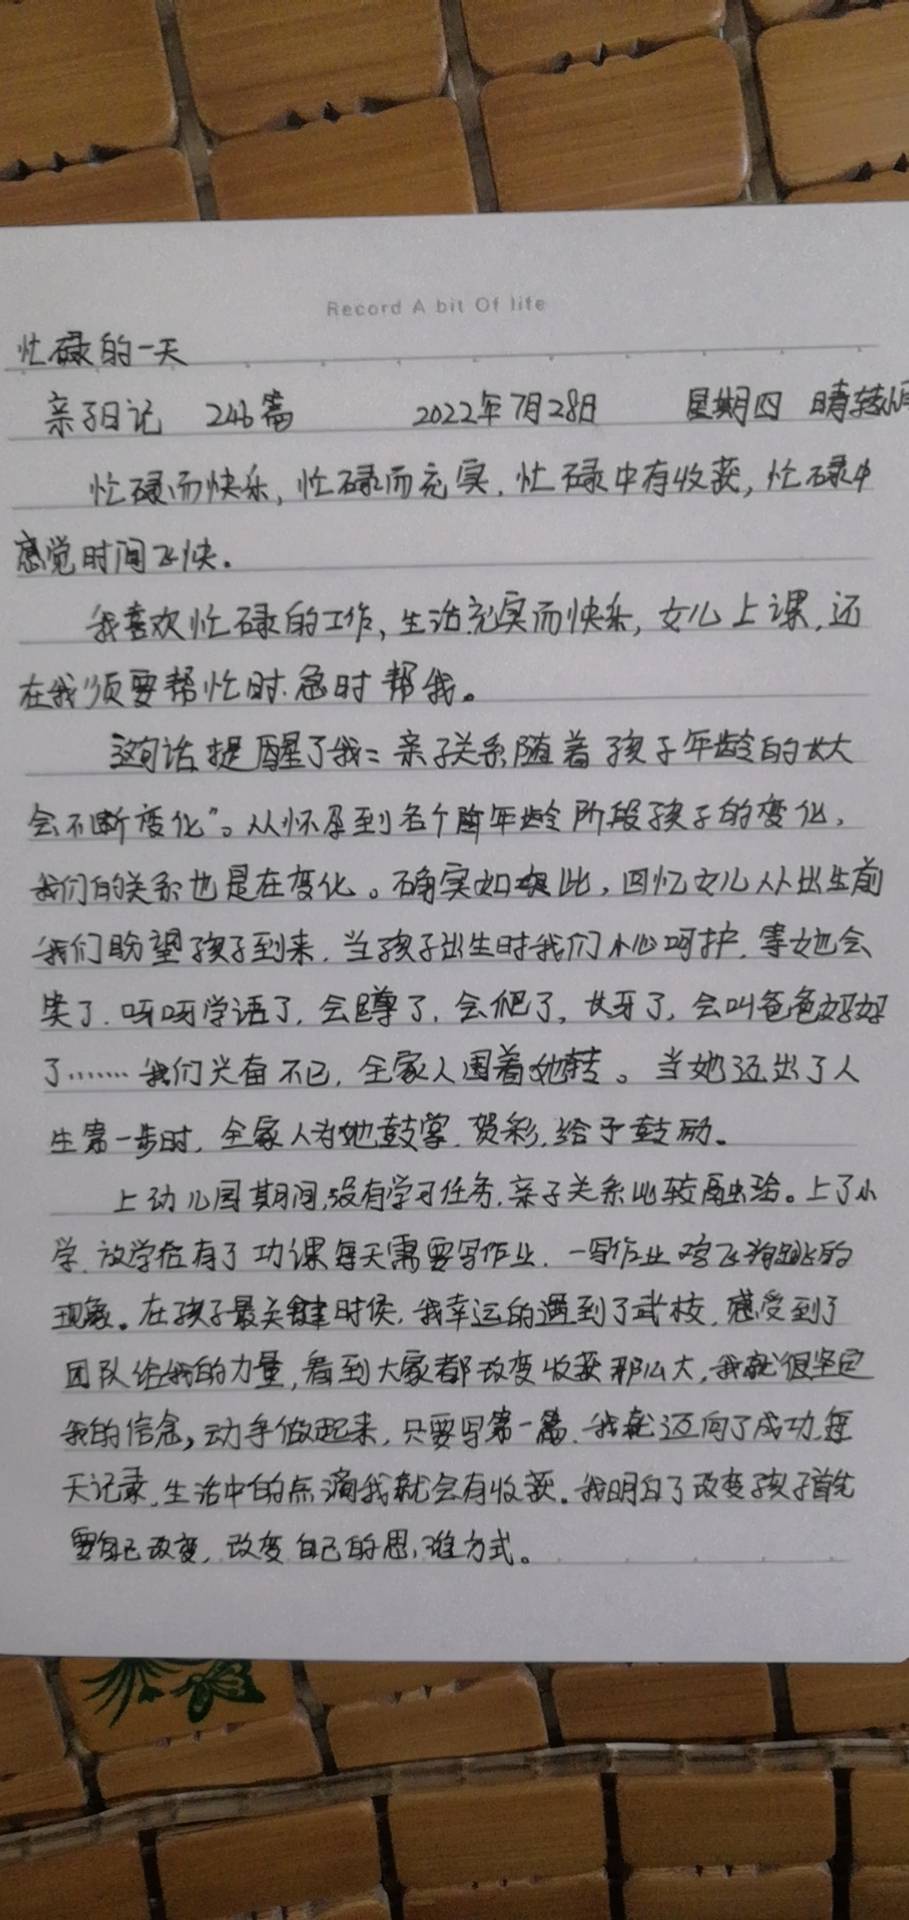 Record A bit Of life
忙碌的一天
亲子日记 246篇 2022年7月28日 星期四 晴转小雨
忙碌而快乐，忙碌而充实，忙碌中存收获，忙碌中
感觉时间飞快。
我喜欢忙碌的工作，生活充实而快乐，女儿上课，还
在我须要帮忙时、急时帮我。
这句话提醒了我：亲子关系随着孩子年龄的长大
会不断变化”。从怀孕到各个年龄阶段孩子的变化，
我们的关系也是在变化。确实如此，回忆女儿从出生前
我们盼望孩子到来，当孩子出生时我们小心呵护，等她会
笑了，呀呀学语了，会蹲了，会爬了，长牙了，会叫爸爸妈妈
了……我们兴奋不已，全家人围着她转。当她迈出了人
生第一步时，全家人为她鼓掌、贺彩，给予鼓励。
上幼儿园期间，没有学习任务，亲子关系比较融洽。上了小
学，放学后有了功课每天需要写作业，一写作业鸡飞狗跳的
现象。在孩子最关键时候，我幸运的遇到了武校，感受到了
团队给我的力量，看到大家都改变收获那么大，我就很坚定
我的信念，动手做起来，只要写第一篇，我就迈向了成功，每
天记录，生活中的点滴我就会有收获。我明白了改变孩子首先
要自己改变，改变自己的思维方式。